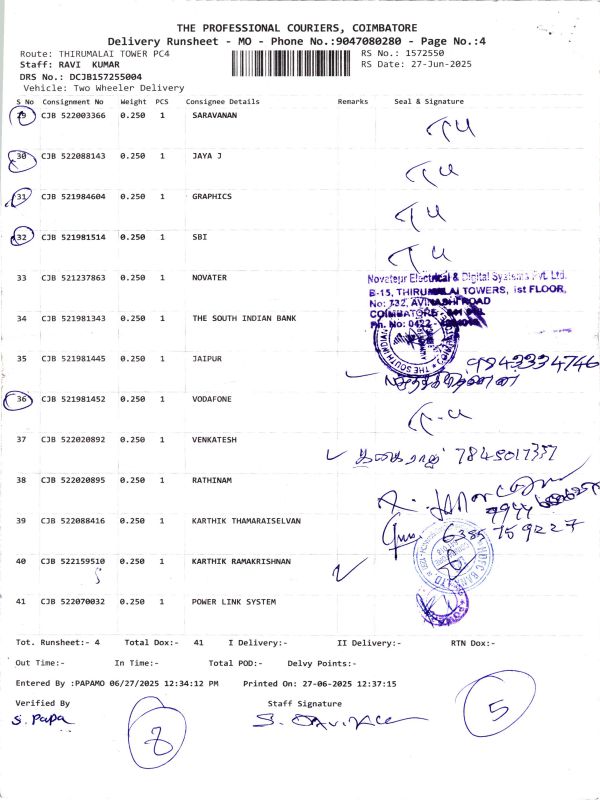 THE PROFESSIONAL COURIERS, COIMBATORE
Delivery Runsheet - MO - Phone No.:9047080280 - Page No.:4
Route: THIRUMALAI TOWER PC4 RS No.: 1572550
Staff: RAVI KUMAR RS Date: 27-Jun-2025
DRS No.: DCJB157255004
Vehicle: Two Wheeler Delivery
S No Consignment No Weight PCS Consignee Details Remarks Seal & Signature
29 CJB 522003366 0.250 1 SARAVANAN
30 CJB 522088143 0.250 1 JAYA J
31 CJB 521984604 0.250 1 GRAPHICS
32 CJB 521981514 0.250 1 SBI
33 CJB 521237863 0.250 1 NOVATER
Novateur Electrical & Digital Systems Pvt. Ltd.
B-15, THIRUMALAI TOWERS, Ist FLOOR,
No: 732, AVINASHI ROAD
COIMBATORE
Ph. No: 0422 -
34 CJB 521981343 0.250 1 THE SOUTH INDIAN BANK
35 CJB 521981445 0.250 1 JAIPUR 9943334746
36 CJB 521981452 0.250 1 VODAFONE
37 CJB 522020892 0.250 1 VENKATESH
38 CJB 522020895 0.250 1 RATHINAM
39 CJB 522088416 0.250 1 KARTHIK THAMARAISELVAN 6385759227
40 CJB 522159510 0.250 1 KARTHIK RAMAKRISHNAN
41 CJB 522070032 0.250 1 POWER LINK SYSTEM
Tot. Runsheet:- 4 Total Dox:- 41 I Delivery:- II Delivery:- RTN Dox:-
Out Time:- In Time:- Total POD:- Delvy Points:-
Entered By :PAPAMO 06/27/2025 12:34:12 PM Printed On: 27-06-2025 12:37:15
Verified By Staff Signature
S. Papa
8
5